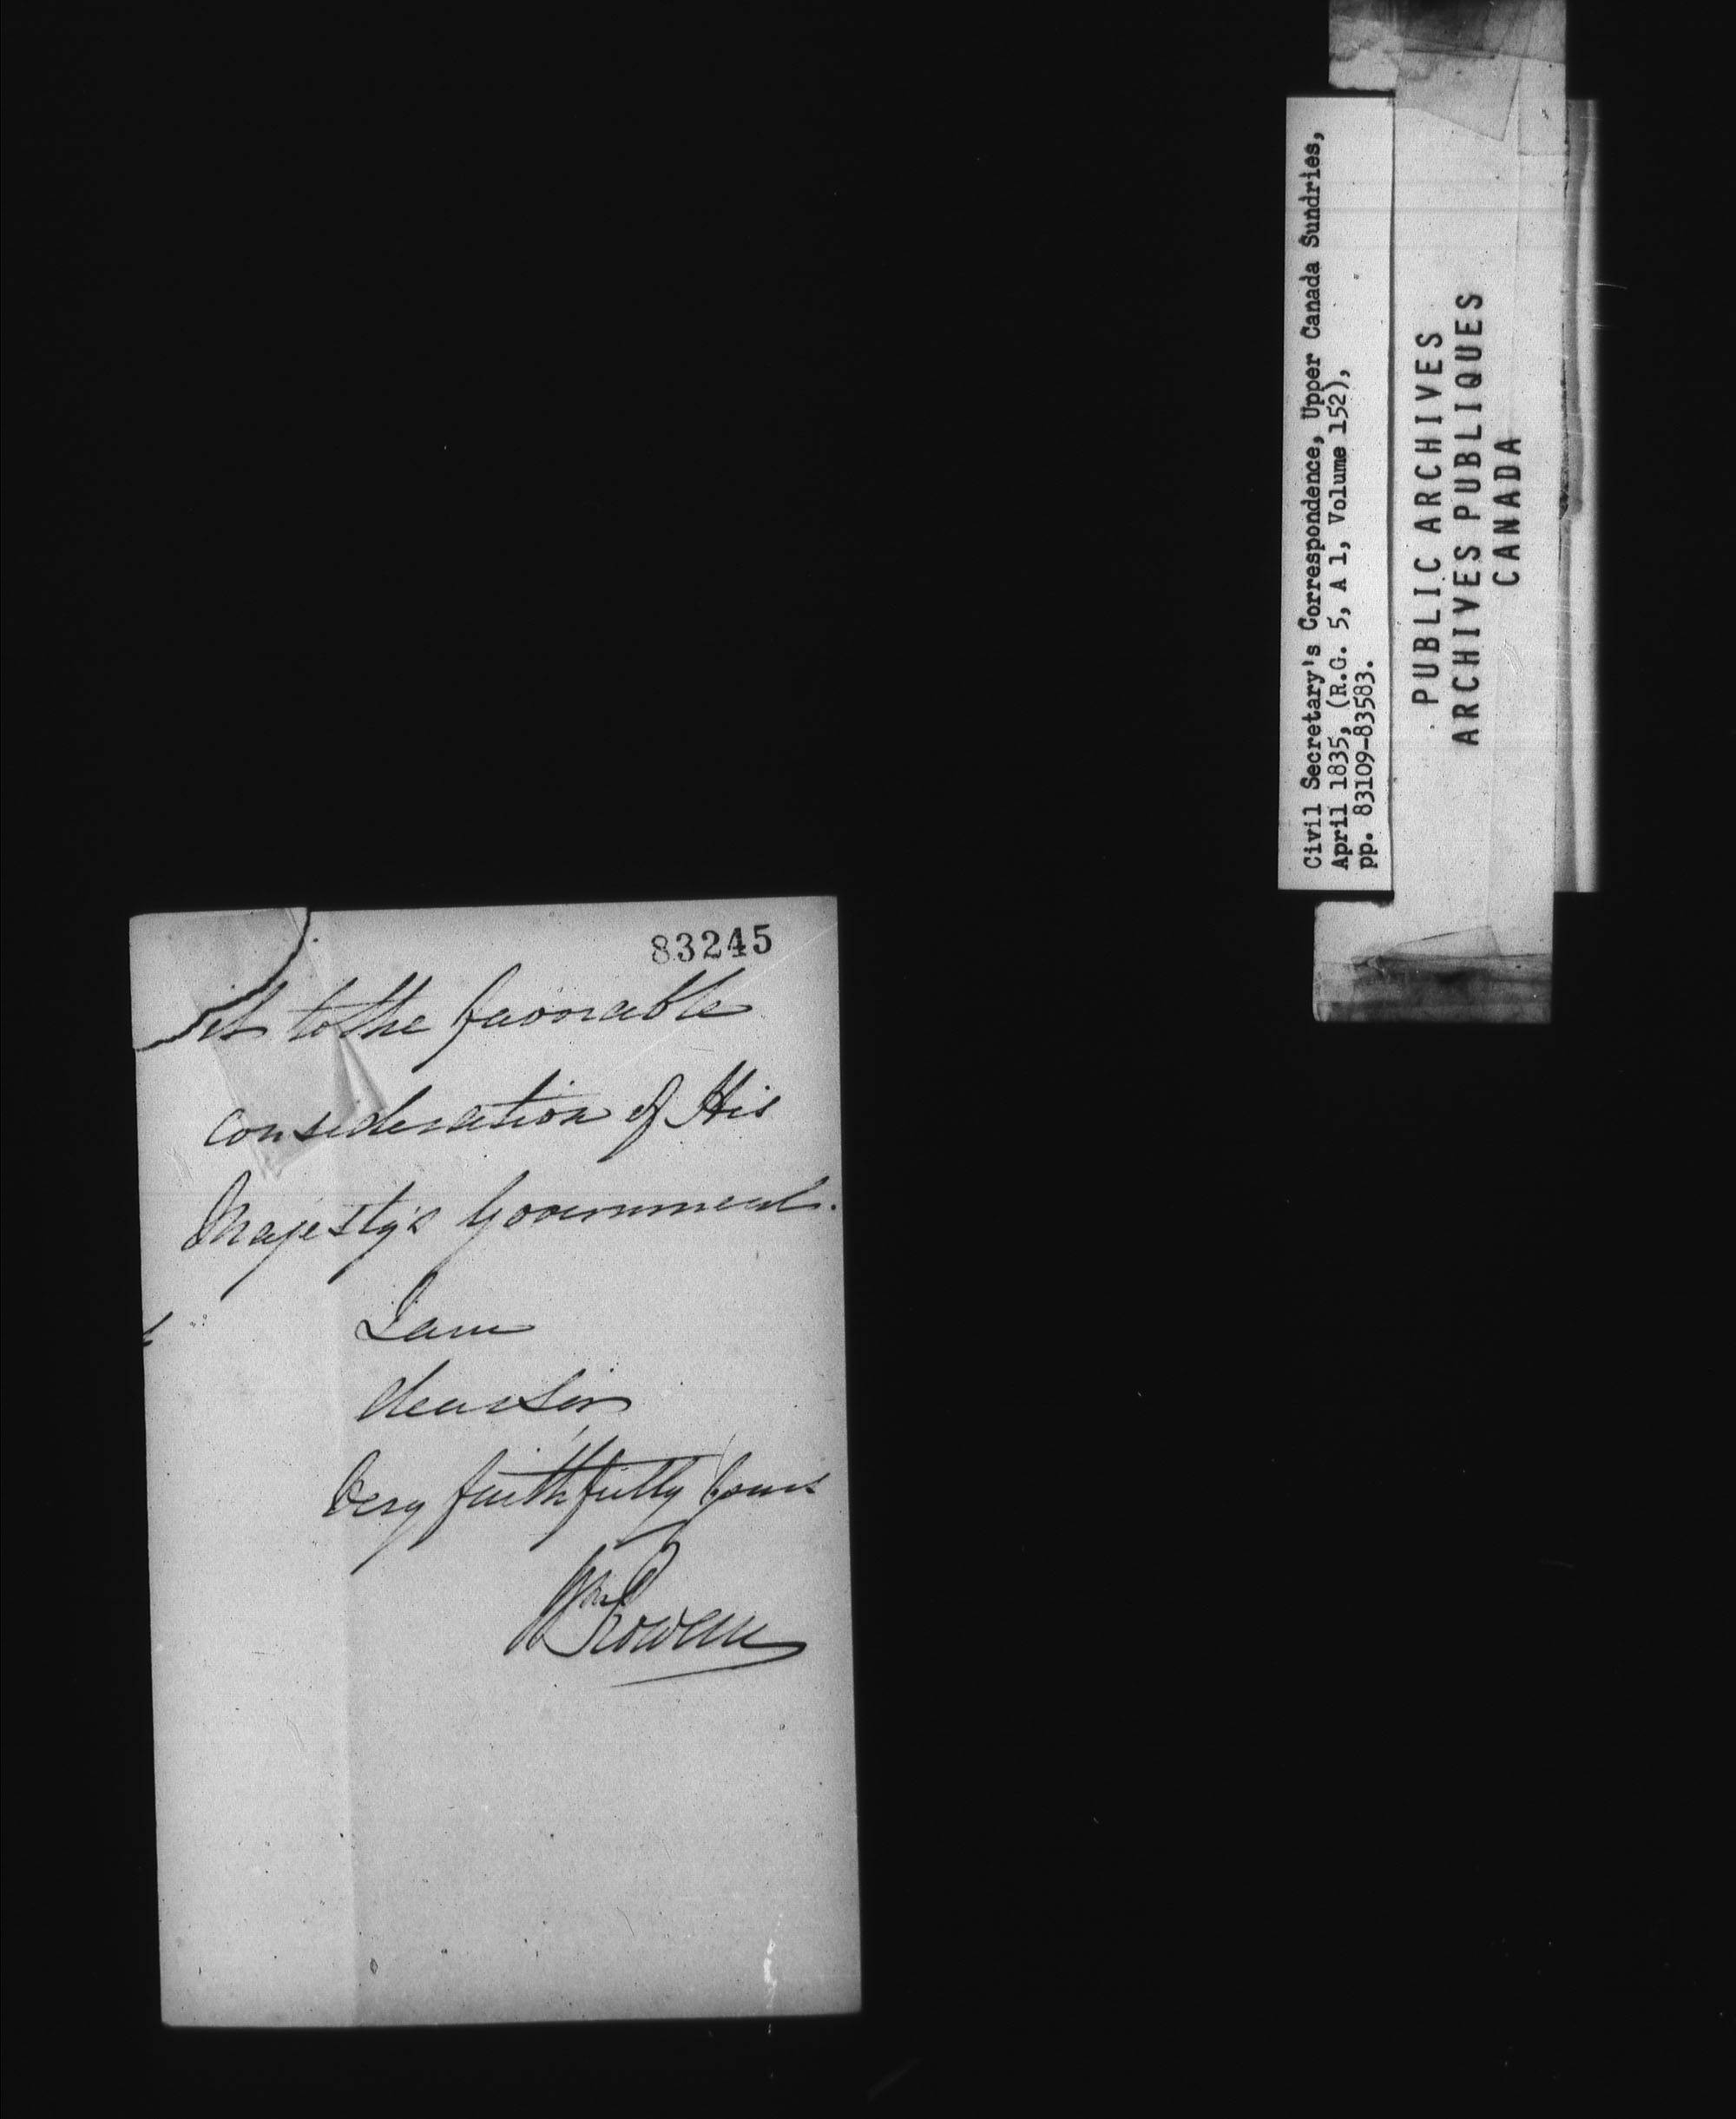 83245
it to the favorable
consideration of His
Majesty's Government.
I am
dear Sir
Very faithfully Yours
Wm Rowan
Civil Secretary's Correspondence, Upper Canada Sundries,
April 1835, (R.G. 5, A 1, Volume 152),
pp. 83109-83583.
PUBLIC ARCHIVES
ARCHIVES PUBLIQUES
CANADA